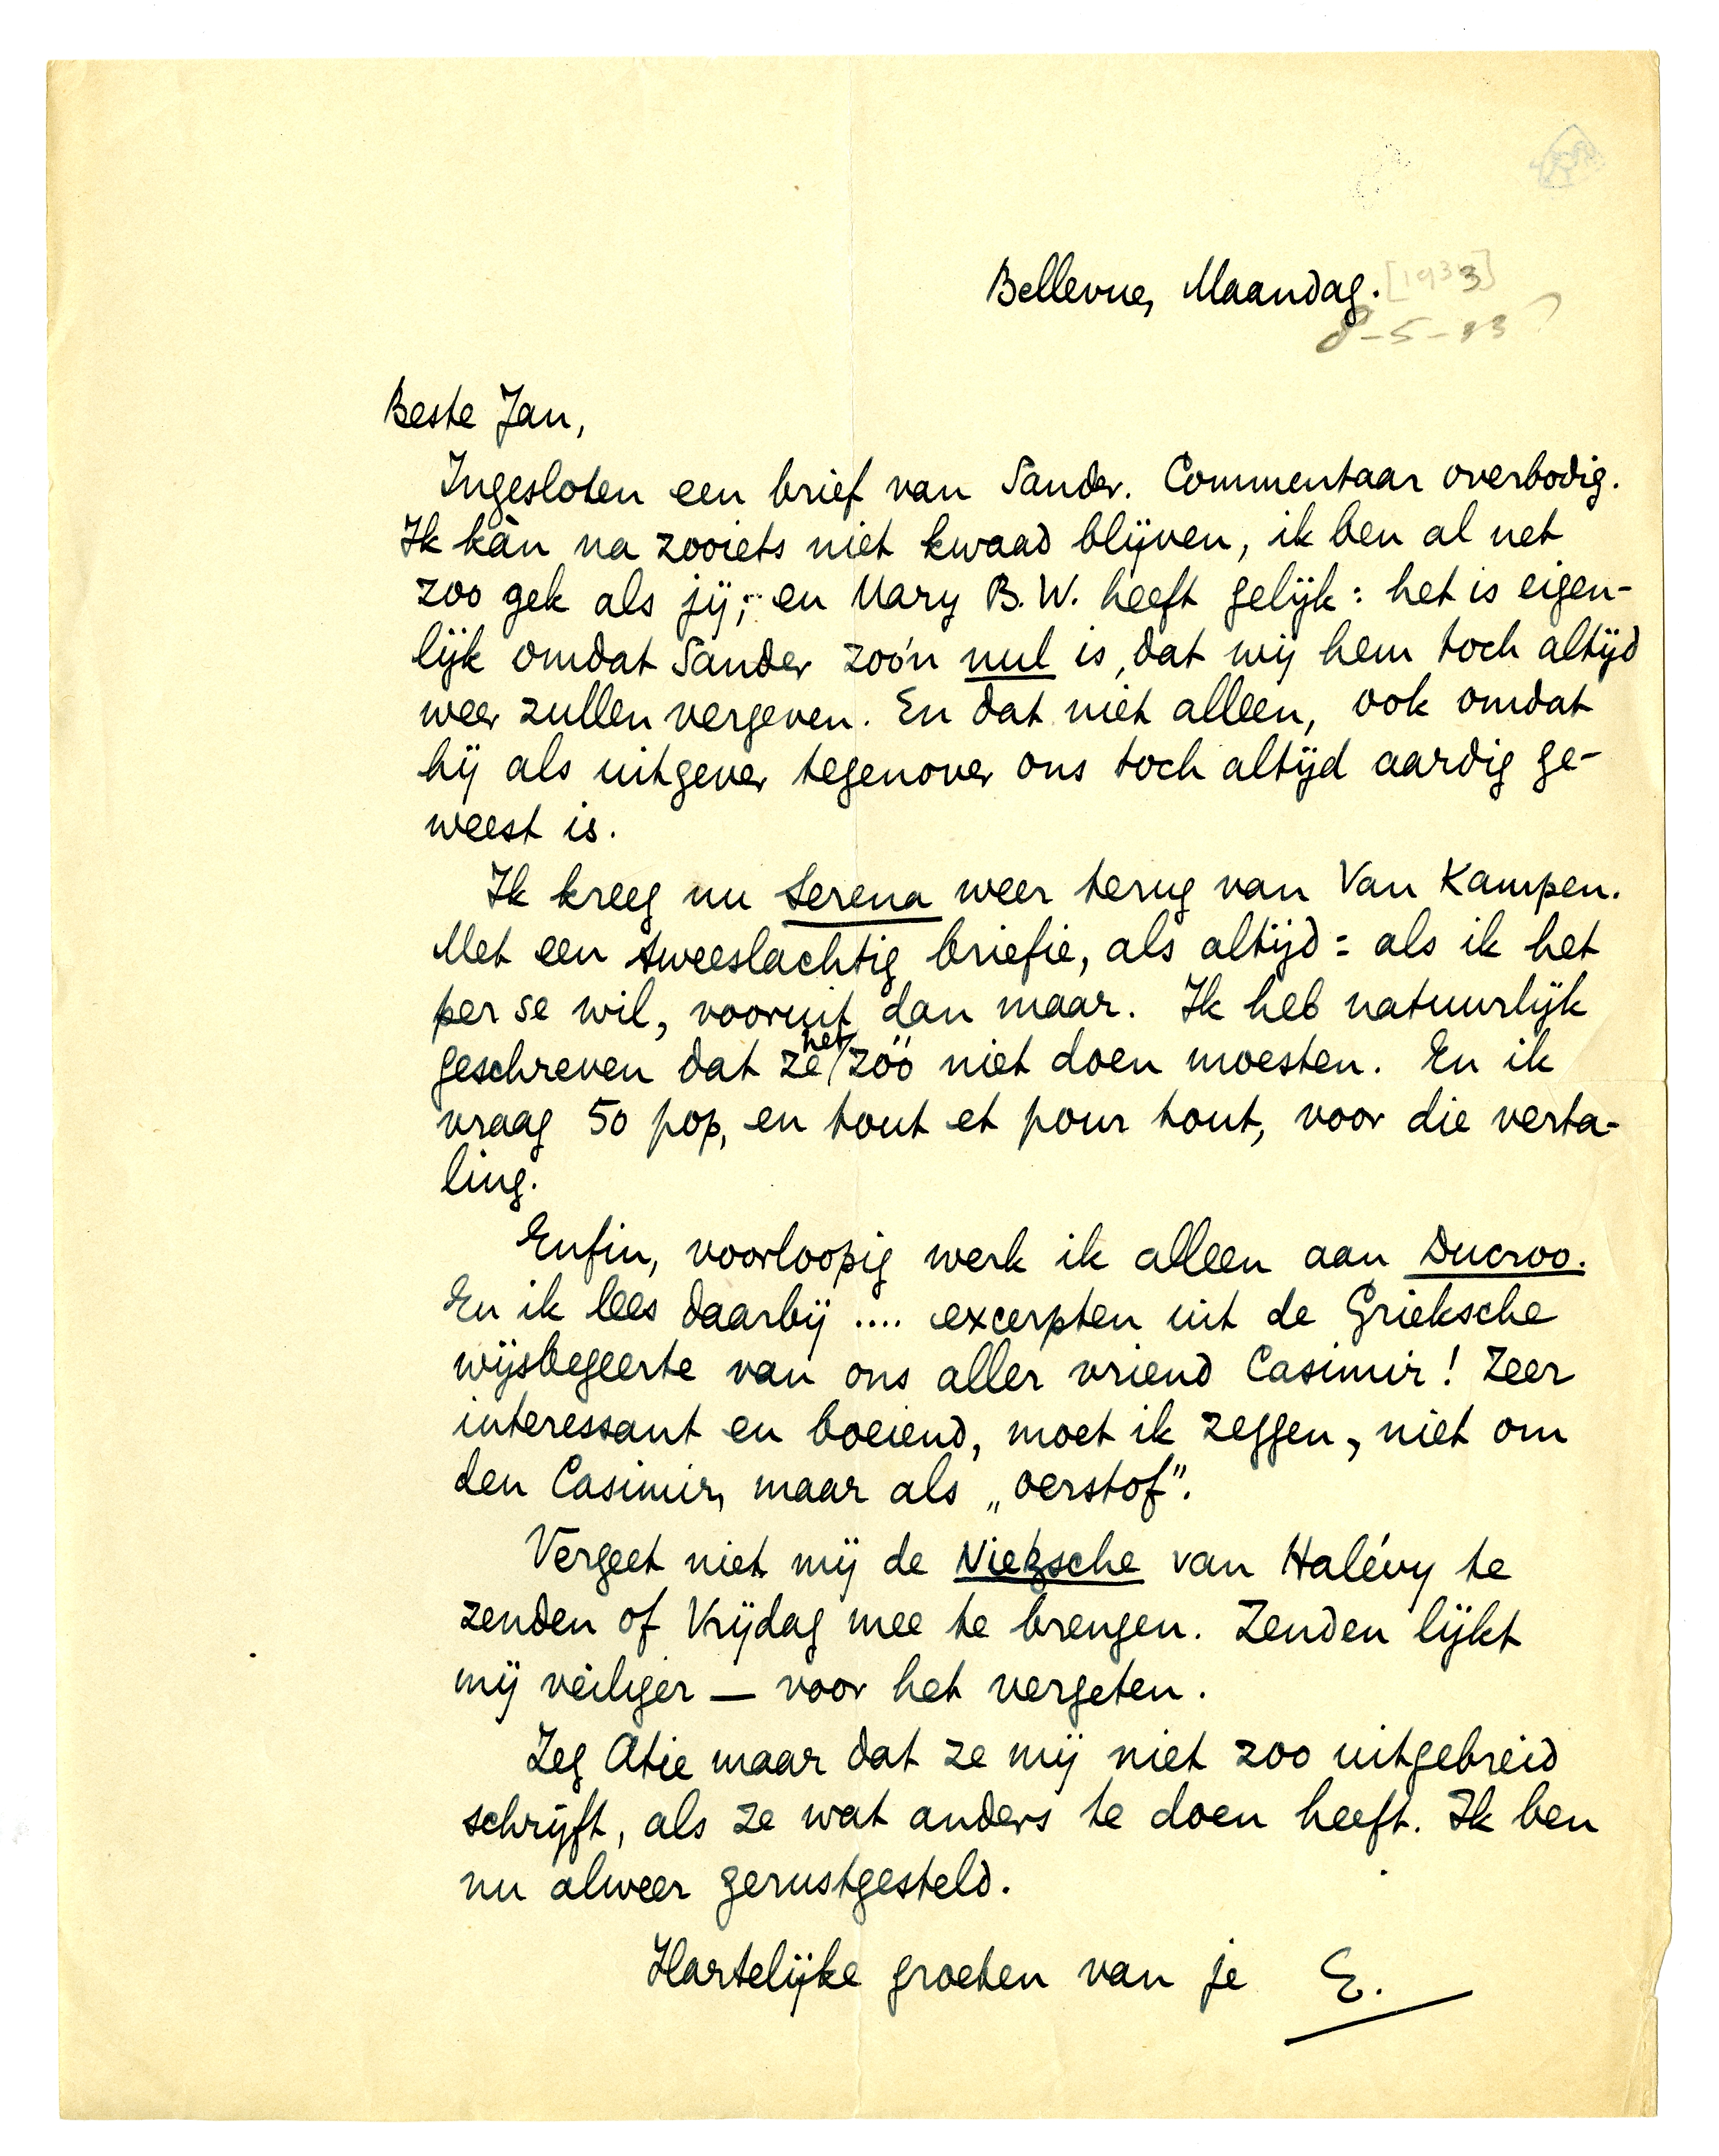 Bellevue, Maandag. [1933]
8-5-33 ?
Beste Jan,
Ingesloten een brief van Sander. Commentaar overbodig.
Ik kàn na zooiets niet kwaad blijven, ik ben al net
zoo gek als jij; en Mary B.W. heeft gelijk: het is eigen-
lijk omdat Sander zoo'n nul is, dat wij hem toch altijd
weer zullen vergeven. En dat niet alleen, ook omdat
hij als uitgever tegenover ons toch altijd aardig ge-
weest is.
Ik kreeg nu Serena weer terug van Van Kampen.
Met een tweeslachtig briefie, als altijd: als ik het
per se wil, vooruit dan maar. Ik heb natuurlijk
geschreven dat ze het zóó niet doen moesten. En ik
vraag 50 pop, en tout et pour tout, voor die verta-
ling.
Enfin, voorloopig werk ik alleen aan Ducroo.
En ik lees daarbij .... excerpten uit de Grieksche
wijsbegeerte van ons aller vriend Casimir! Zeer
interessant en boeiend, moet ik zeggen, niet om
den Casimir, maar als „oerstof".
Vergeet niet mij de Nietzsche van Halévy te
zenden of Vrijdag mee te brengen. Zenden lijkt
mij veiliger — voor het vergeten.
Zeg Atie maar dat ze mij niet zoo uitgebreid
schrijft, als ze wat anders te doen heeft. Ik ben
nu alweer gerustgesteld.
Hartelijke groeten van je E.